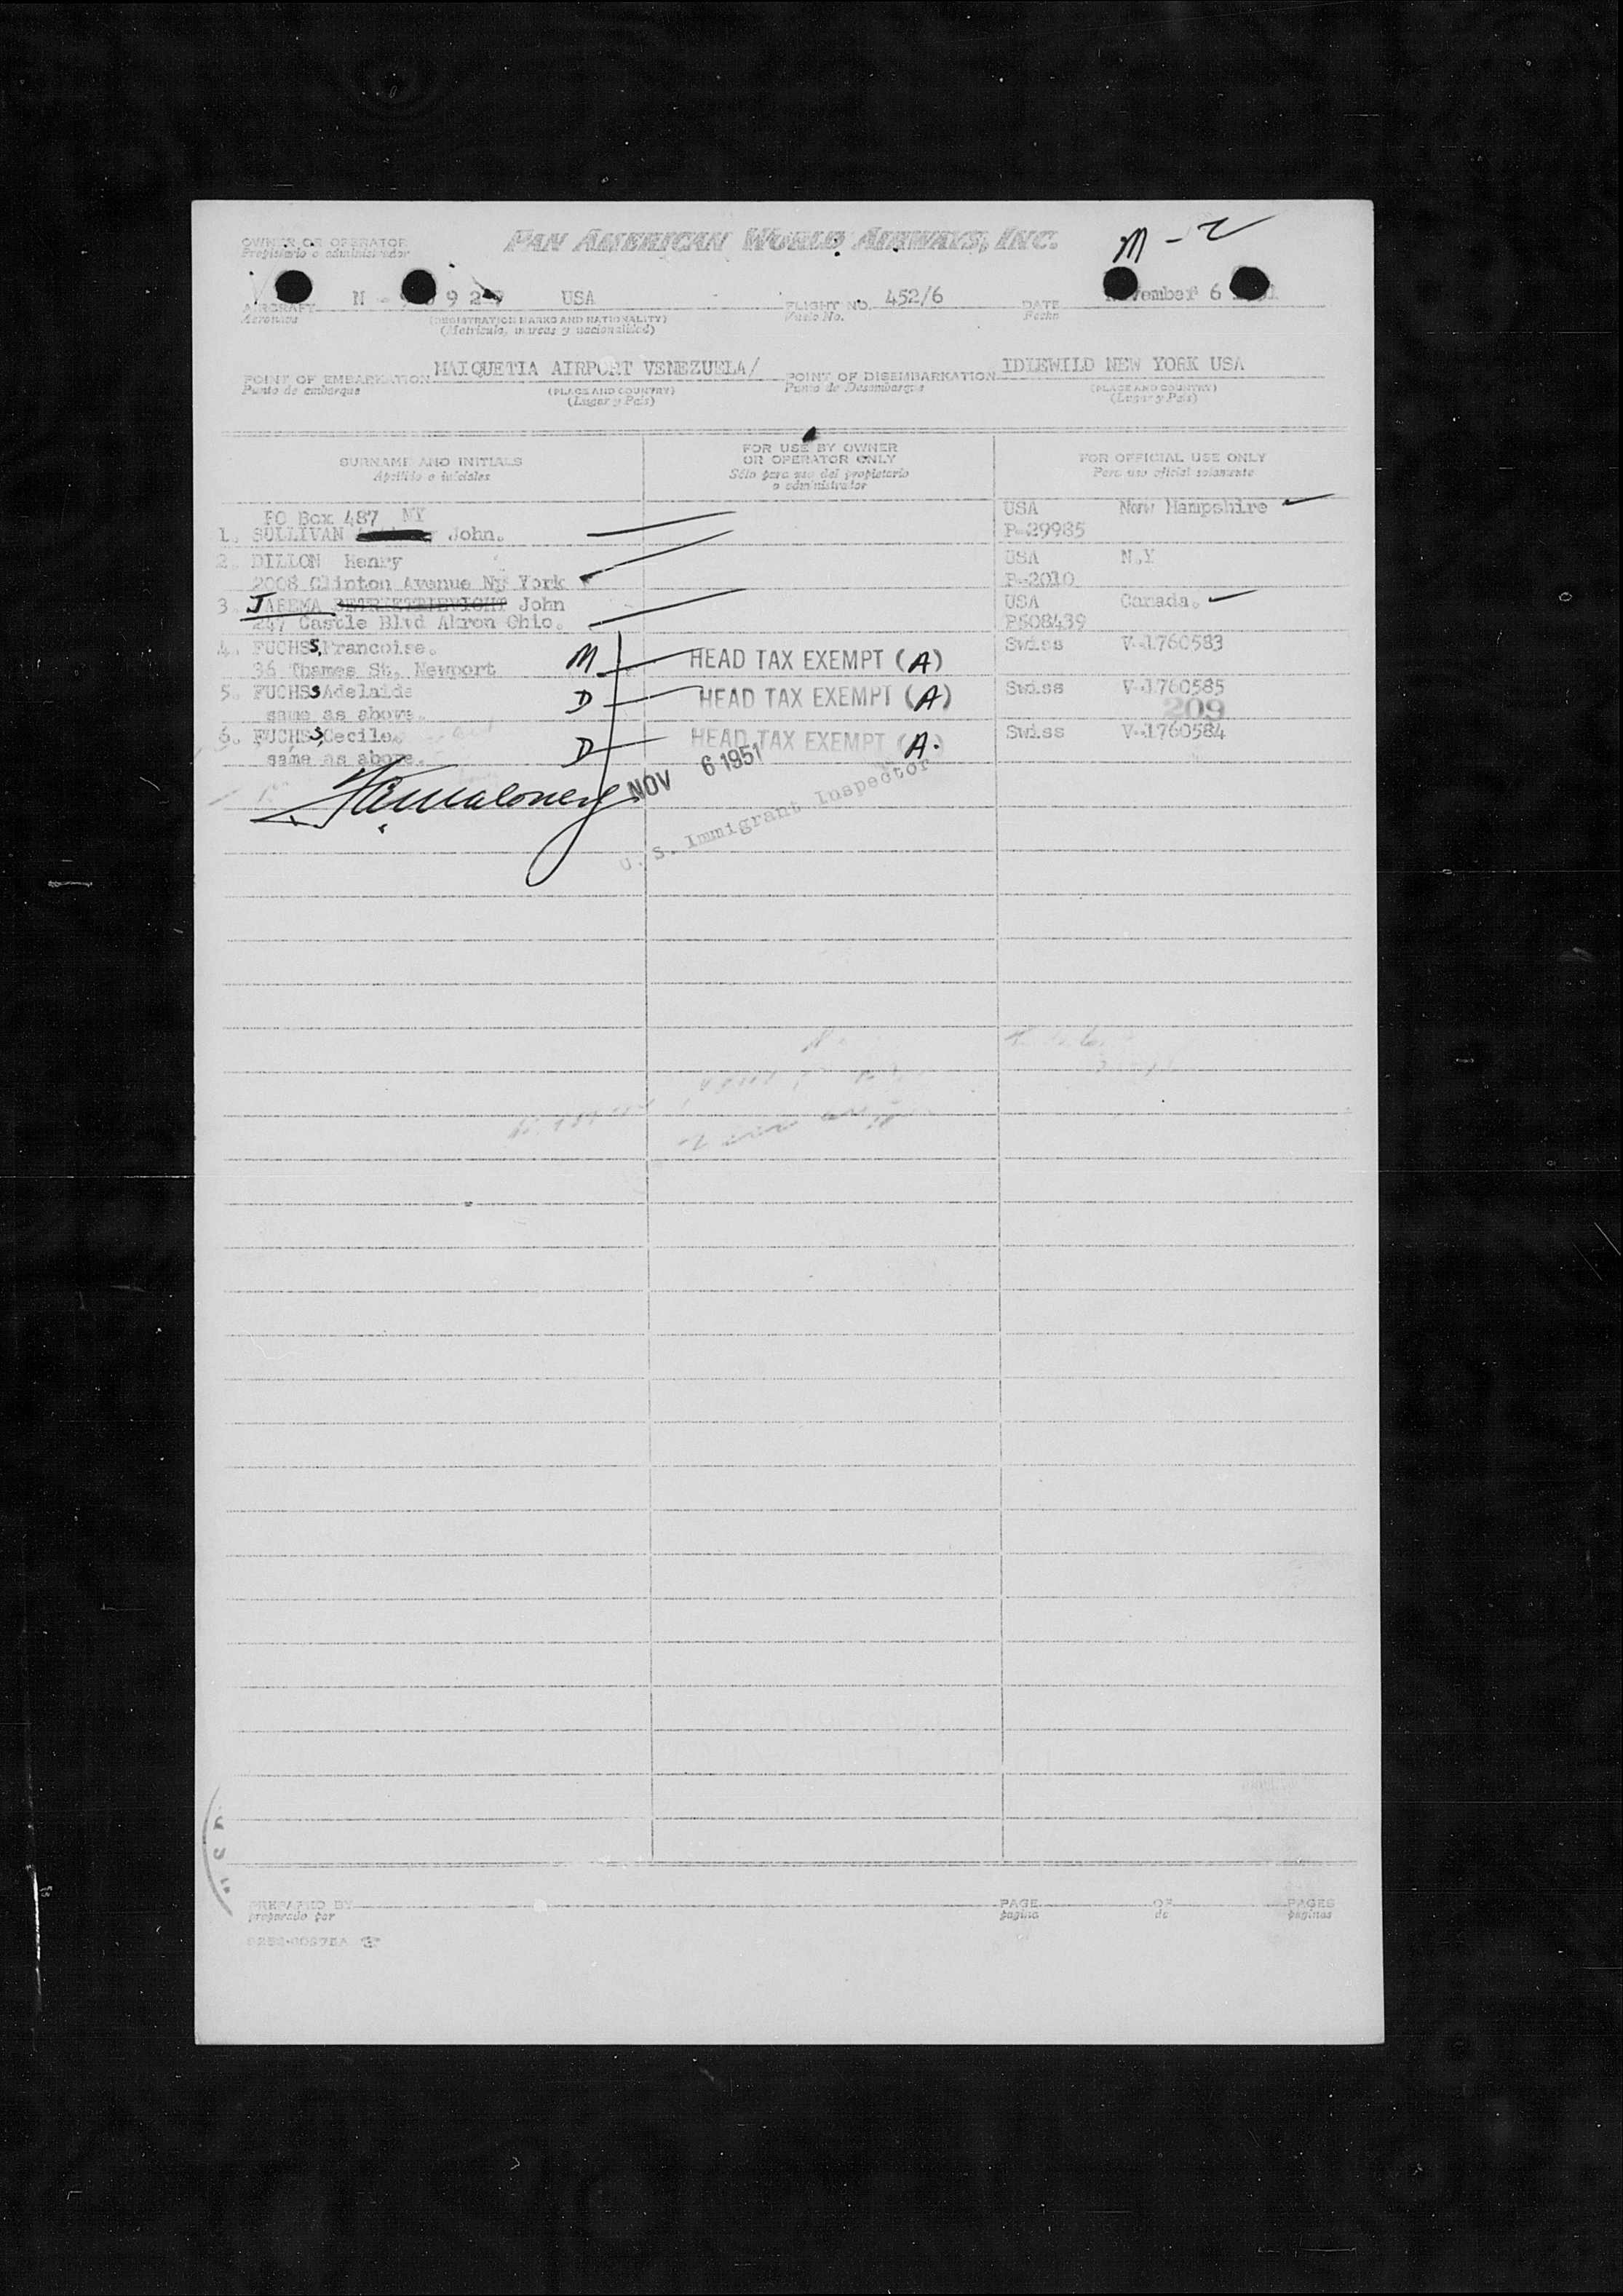 M-2
OWNER OR OPERATOR PAN AMERICAN WORLD AIRWAYS, INC.
Propietario o administrador
AIRCRAFT N - 9 2 USA FLIGHT NO. 452/6 DATE November 6
Aeronave (REGISTRATION MARKS AND NATIONALITY) Vuelo No. Fecha
(Matricula, marcas y nacionalidad)
POINT OF EMBARKATION MAIQUETIA AIRPORT VENEZUELA/ POINT OF DISEMBARKATION IDLEWILD NEW YORK USA
Punto de embarque (PLACE AND COUNTRY) Punto de Desembarque (PLACE AND COUNTRY)
(Lugar y Pais) (Lugar y Pais)
SURNAME AND INITIALS FOR USE BY OWNER OR OPERATOR ONLY FOR OFFICIAL USE ONLY
Apellido e iniciales Sólo para uso del propietario o administrador Para uso oficial solamente
PO Box 487 NY USA New Hampshire
1. SULLIVAN John. P-29985
2. DILLON Henry USA N.Y
2008 Clinton Avenue Ny York P-2010
3 JAREMA John USA Canada.
247 Castle Blvd Akron Ohio. P508439
4. FUCHSS, Francoise. Swiss V-1760583
36 Thames St, Newport M HEAD TAX EXEMPT (A)
5. FUCHSS Adelaide D HEAD TAX EXEMPT (A) Swiss V-1760585
same as above. 209
6. FUCHSS, Cecile. HEAD TAX EXEMPT (A. Swiss V-1760584
same as above. D
NOV 6 1951
U. S. Immigrant Inspector
PREPARED BY PAGE OF PAGES
preparado por pagina de paginas